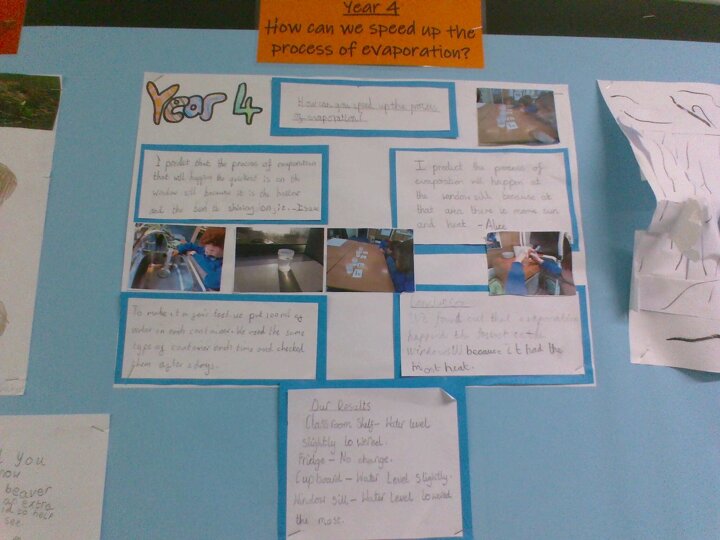 Year 4
How can we speed up the
process of evaporation?
Year 4
How can you speed up the process
of evaporation?
I predict that the process of evaporation
that will happen the quickest is on the
window sill because it is the
and the sun is shining on it. - Isaac
I predict the process of
evaporation will happen at
the window sill because at
that area there is more sun
and heat - Alice
To make it a fair test we put 100ml of
water in each container. We used the same
type of container each time and checked
them after 2 days.
Conclusion
We found out that evaporation
happens the
windowsill because it had the
most heat.
Our Results
Classroom Shelf - Water level
slightly lowered.
Fridge - No change.
Cupboard - Water Level Slightly.
Window Sill - Water Level lowered
the most.
you
now
beaver
extra
to help
see